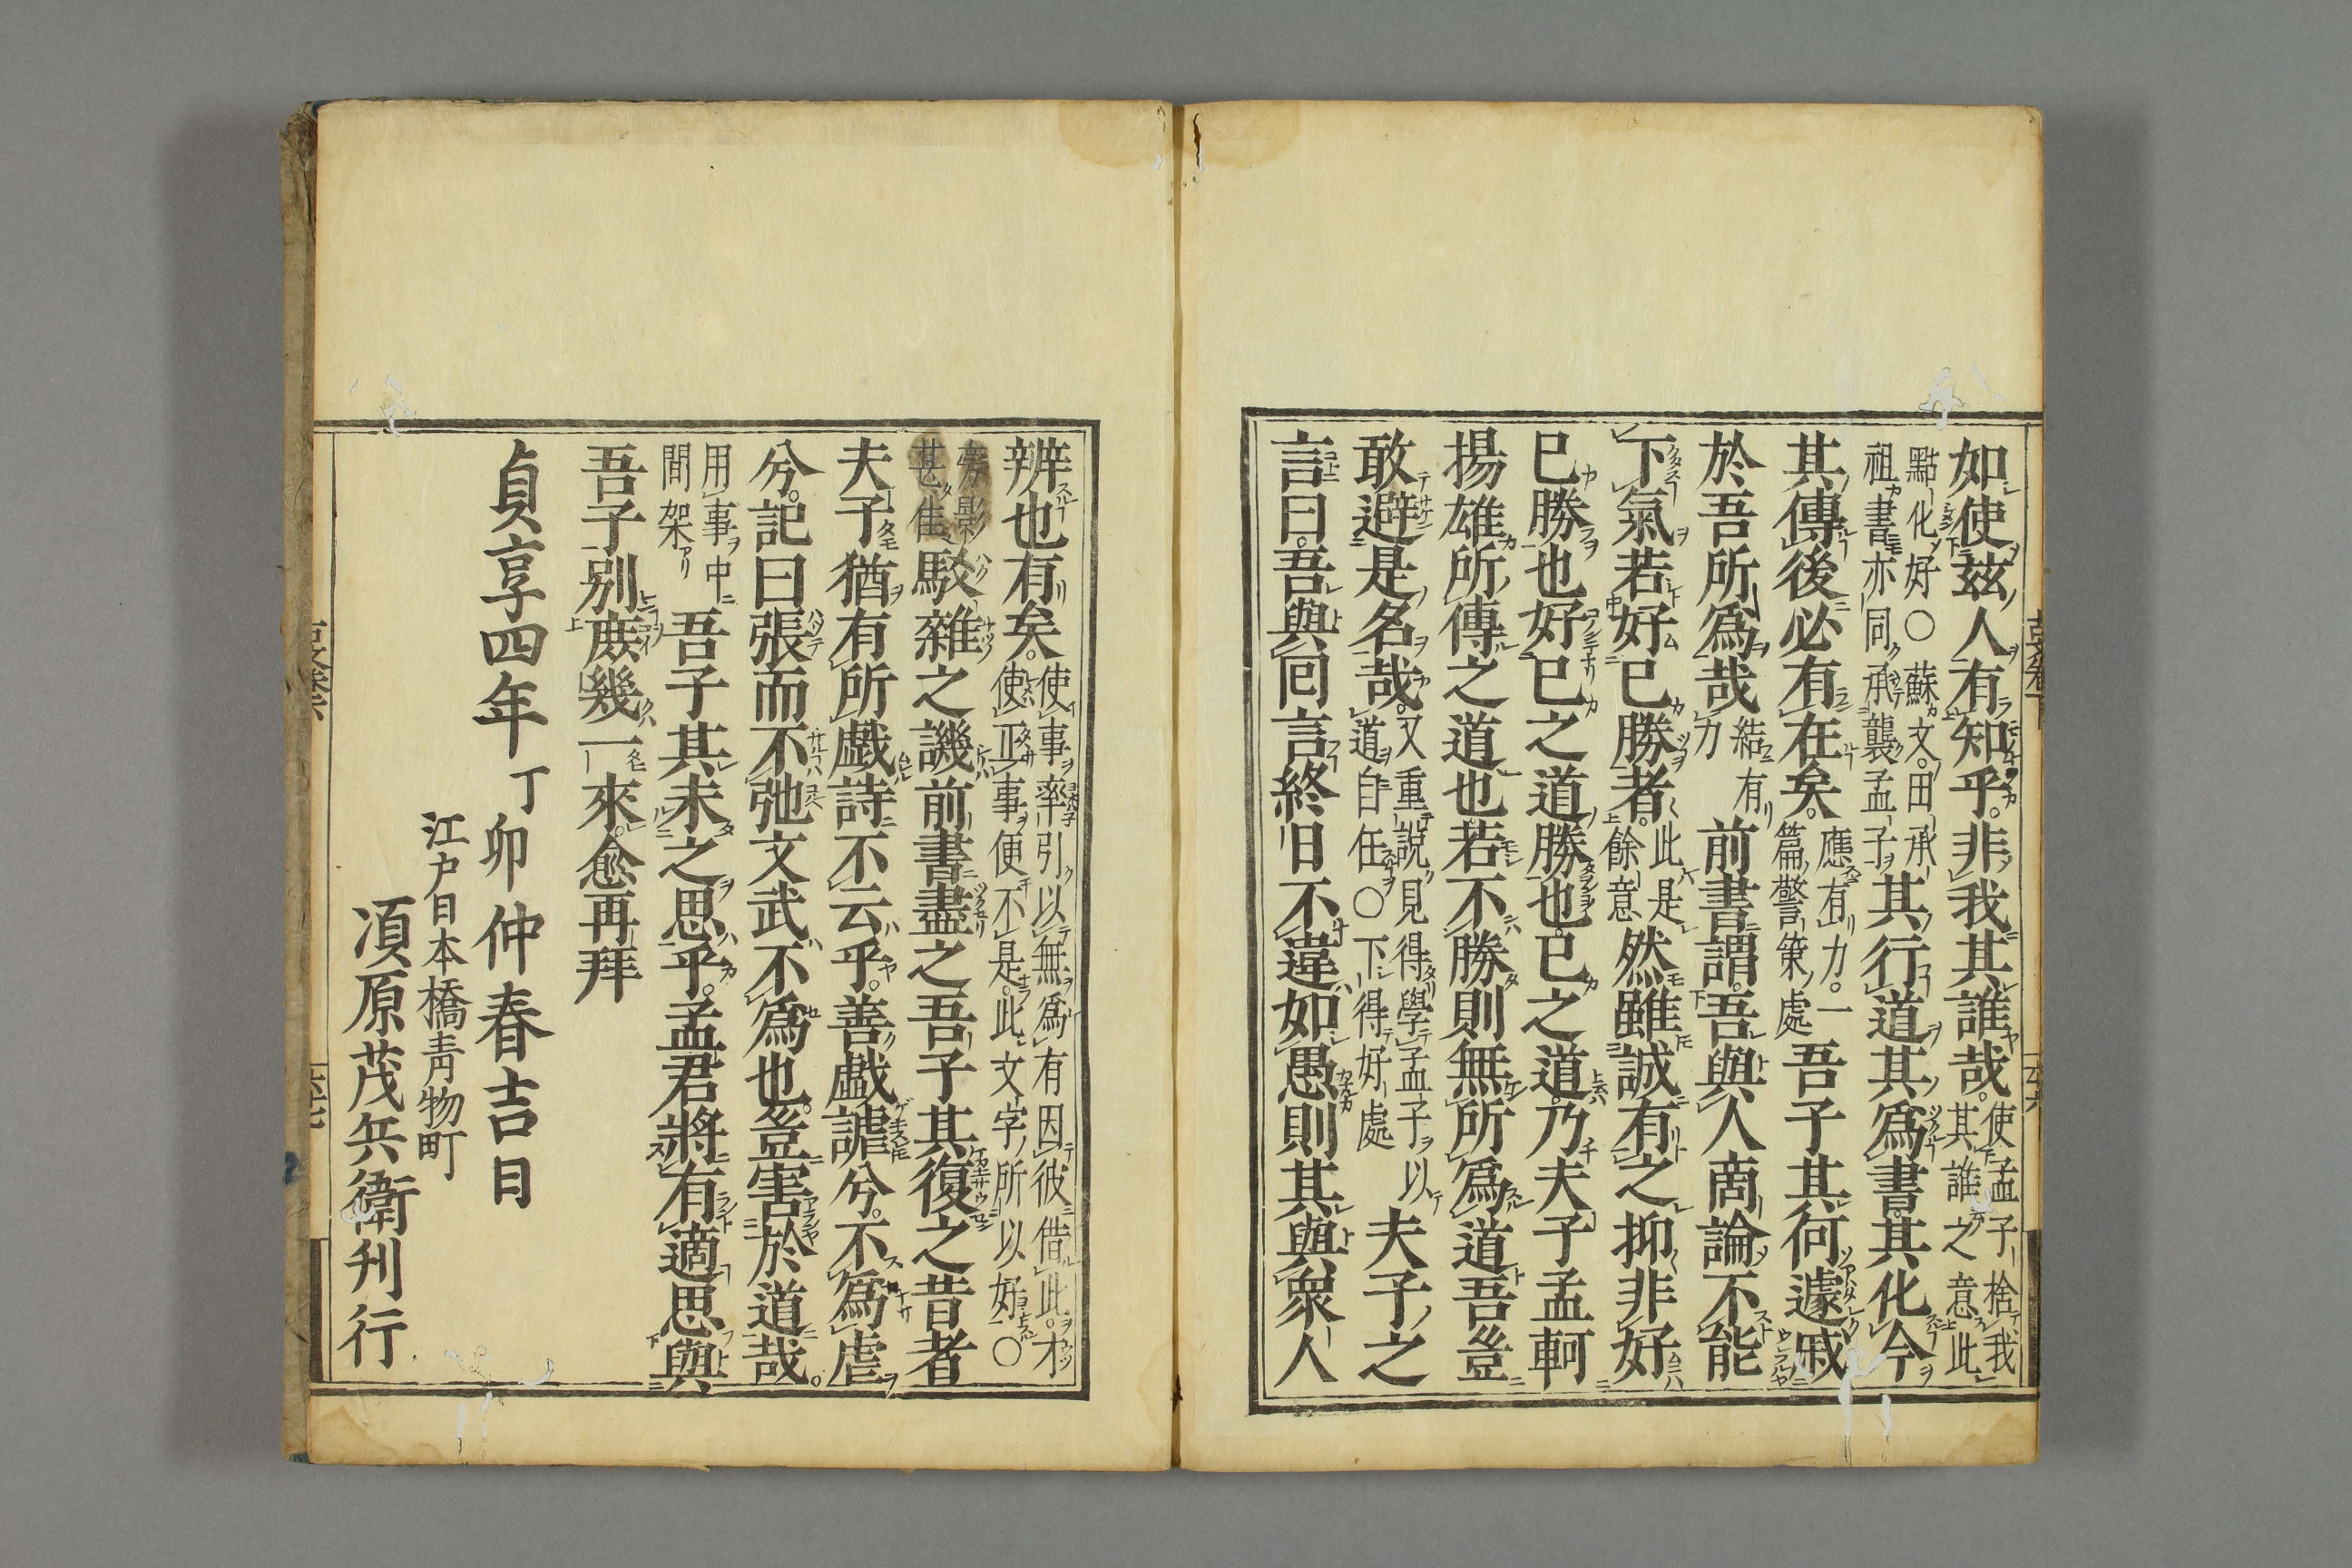 如使茲人有知乎。非我其誰哉。使孟子捨我其誰之意此
點化好○蘇文。田承祖書亦同承襲孟子其行道其爲書其化今
其傳後必有在矣。應有力。一篇警策處吾子其何遽戚
於吾所爲哉結有力前書謂。吾與人商論不能
下氣若好已勝者。此是餘意然雖誠有之抑非好
已勝也好已之道勝也。已之道乃夫子孟軻
揚雄所傳之道也若不勝則無所爲道吾豈
敢避是名哉。又重說見得學孟子以道自任○下得好處夫子之
言曰。吾與回言終日不違如愚則其與衆人
辨也有矣。使事率引以無爲有因彼借此。才使正事便不是。此文字所以好○
旁影甚佳駁雜之譏前書盡之吾子其復之昔者
夫子猶有所戯詩不云乎。善戯謔兮。不爲虐
兮。記曰張而不弛文武不爲也。豈害於道哉。
用事中間架吾子其未之思乎。孟君將有適思與
吾子別庻幾一來。愈再拜
貞享四年丁卯仲春吉日
江戸日本橋靑物町
湏原茂兵衛刋行